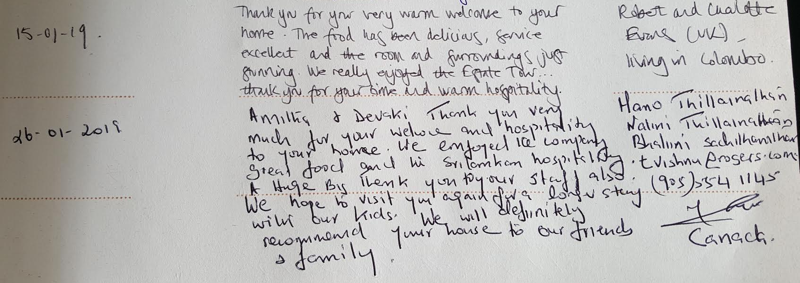 15-01-19.
Thank you for your very warm welcome to your
home. The food has been delicious, service
excellent and the room and surroundings just
stunning. We really enjoyed the Estate Tour...
thank you for your time and warm hospitality.
Robert and Charlotte
Evans (UK) -
living in Colombo.
26-01-2019
& Devaki Thank you very
much for your welcome and hospitality
to your house. We enjoyed the company
great food and the Srilankan hospitality.
A Huge Big Thank you to your staff also.
We hope to visit you again for a longer stay
with our kids. We will definitely
recommend your house to our friends
& family.
Mano Thillainathan
Nalini Thillainathan
(905) 554 1145
Canada.